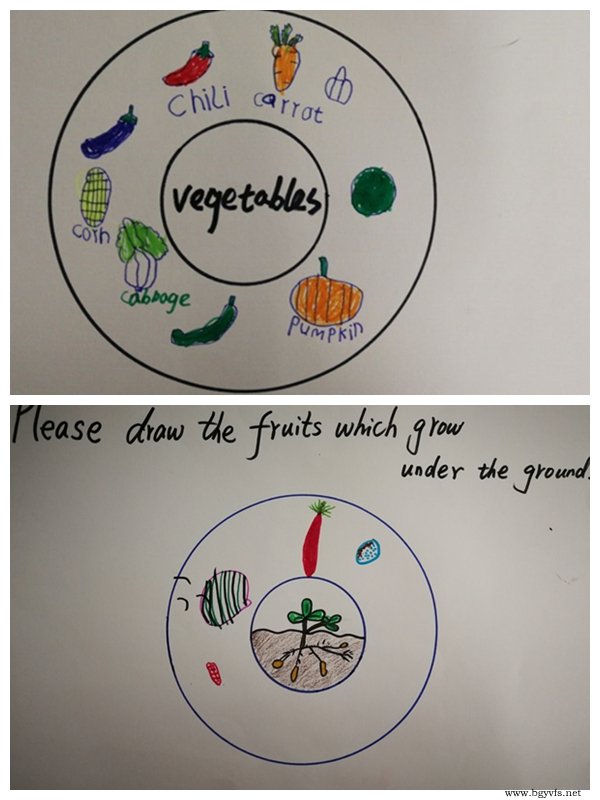 chili carrot
vegetables
corn
cabbage
pumpkin
Please draw the fruits which grow
under the ground.
www.bgyvfs.net